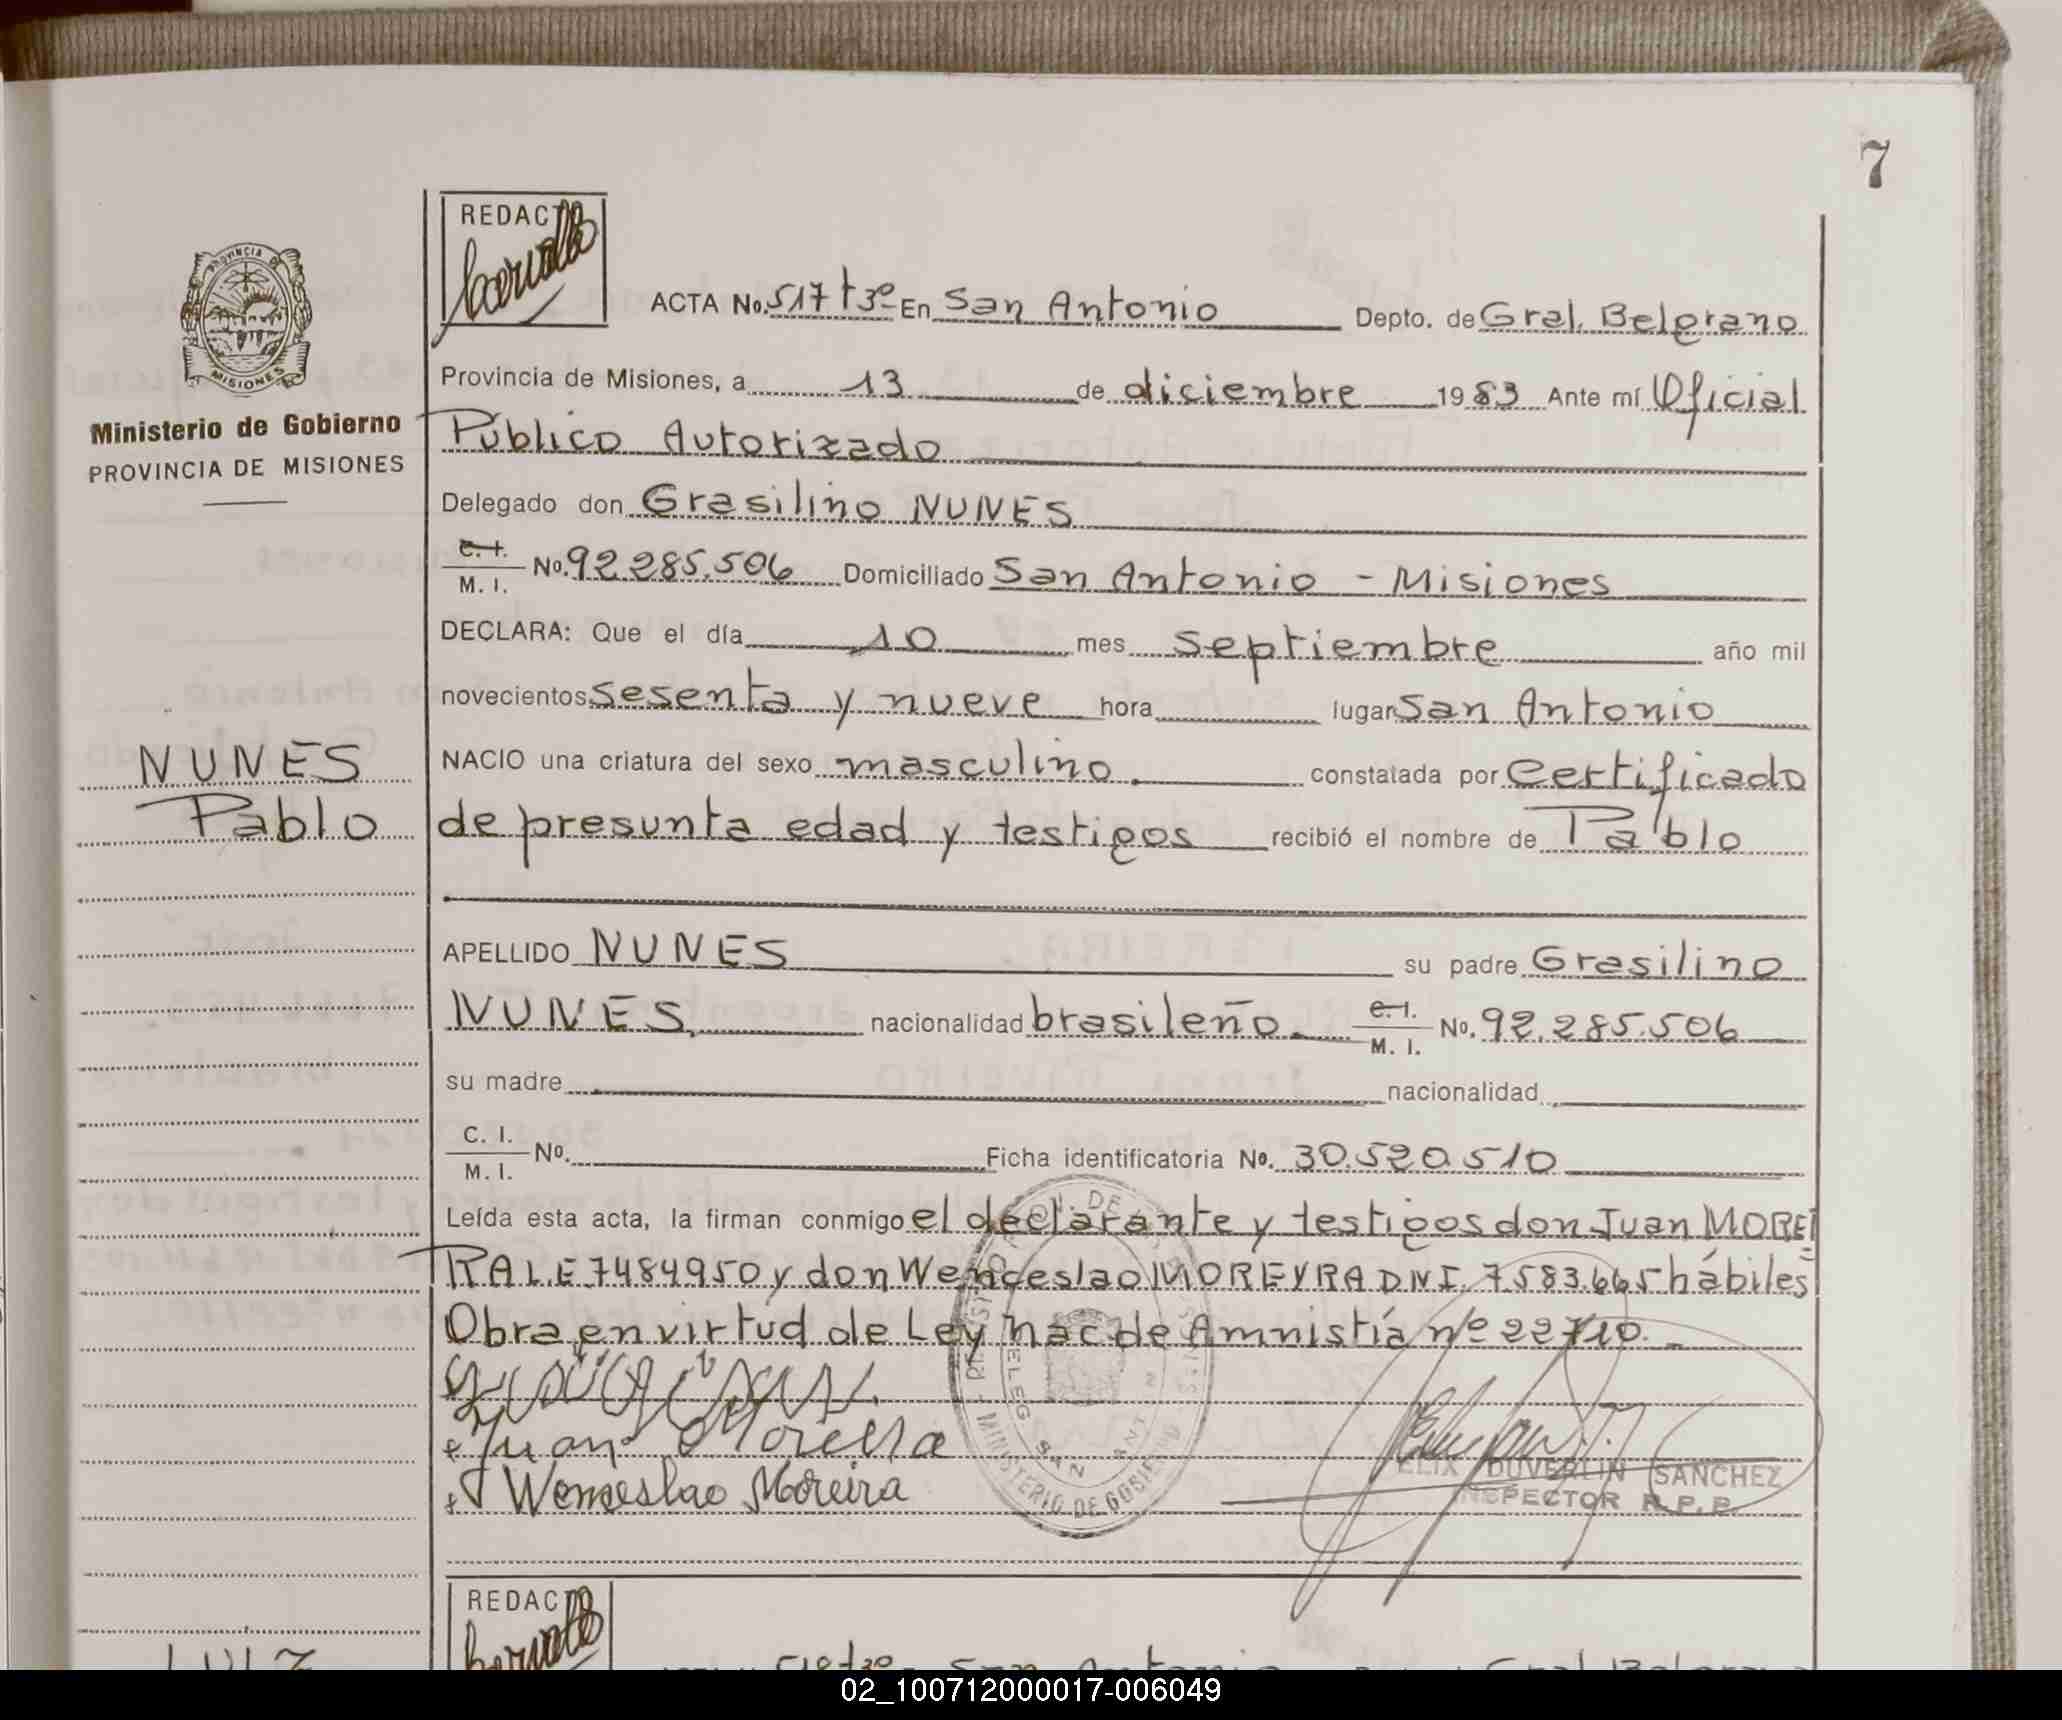 7
REDACTÓ
PROVINCIA DE
MISIONES
Ministerio de Gobierno
PROVINCIA DE MISIONES
ACTA No. 517 tº3º En San Antonio Depto. de Gral. Belgrano
Provincia de Misiones, a 13 de diciembre 1983 Ante mí Oficial
Público Autorizado
Delegado don Grasilino NUNES
C. I.
M. I. No. 92.285.506 Domiciliado San Antonio - Misiones
DECLARA: Que el día 10 mes septiembre año mil
novecientos sesenta y nueve hora lugar San Antonio
NUNES
Pablo
NACIO una criatura del sexo masculino. constatada por Certificado
de presunta edad y testigos recibió el nombre de Pablo
APELLIDO NUNES su padre Grasilino
NUNES. nacionalidad brasileño. C. I.
M. I. No. 92.285.506
su madre nacionalidad
C. I.
M. I. No. Ficha identificatoria No. 30.520.510
Leída esta acta, la firman conmigo el declarante y testigos don Juan MOREI
RA L.E 7484950 y don Wenceslao MOREYRA DNI. 7.583.665 hábiles
Obra en virtud de Ley Nac. de Amnistía nº 22710.
Juan Moreira
Wenceslao Moreira
MINISTERIO DE GOBIERNO
DELEG. SAN ANT
FELIX DUVERLIN SANCHEZ
INSPECTOR R. P. P.
REDACTÓ
02_100712000017-006049